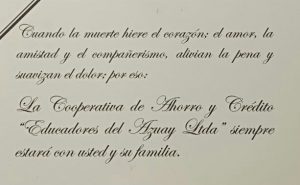 Cuando la muerte hiere el corazón; el amor, la
amistad y el compañerismo, alivian la pena y
suavizan el dolor; por eso:
La Cooperativa de Ahorro y Crédito
“Educadores del Azuay Ltda” siempre
estará con usted y su familia.